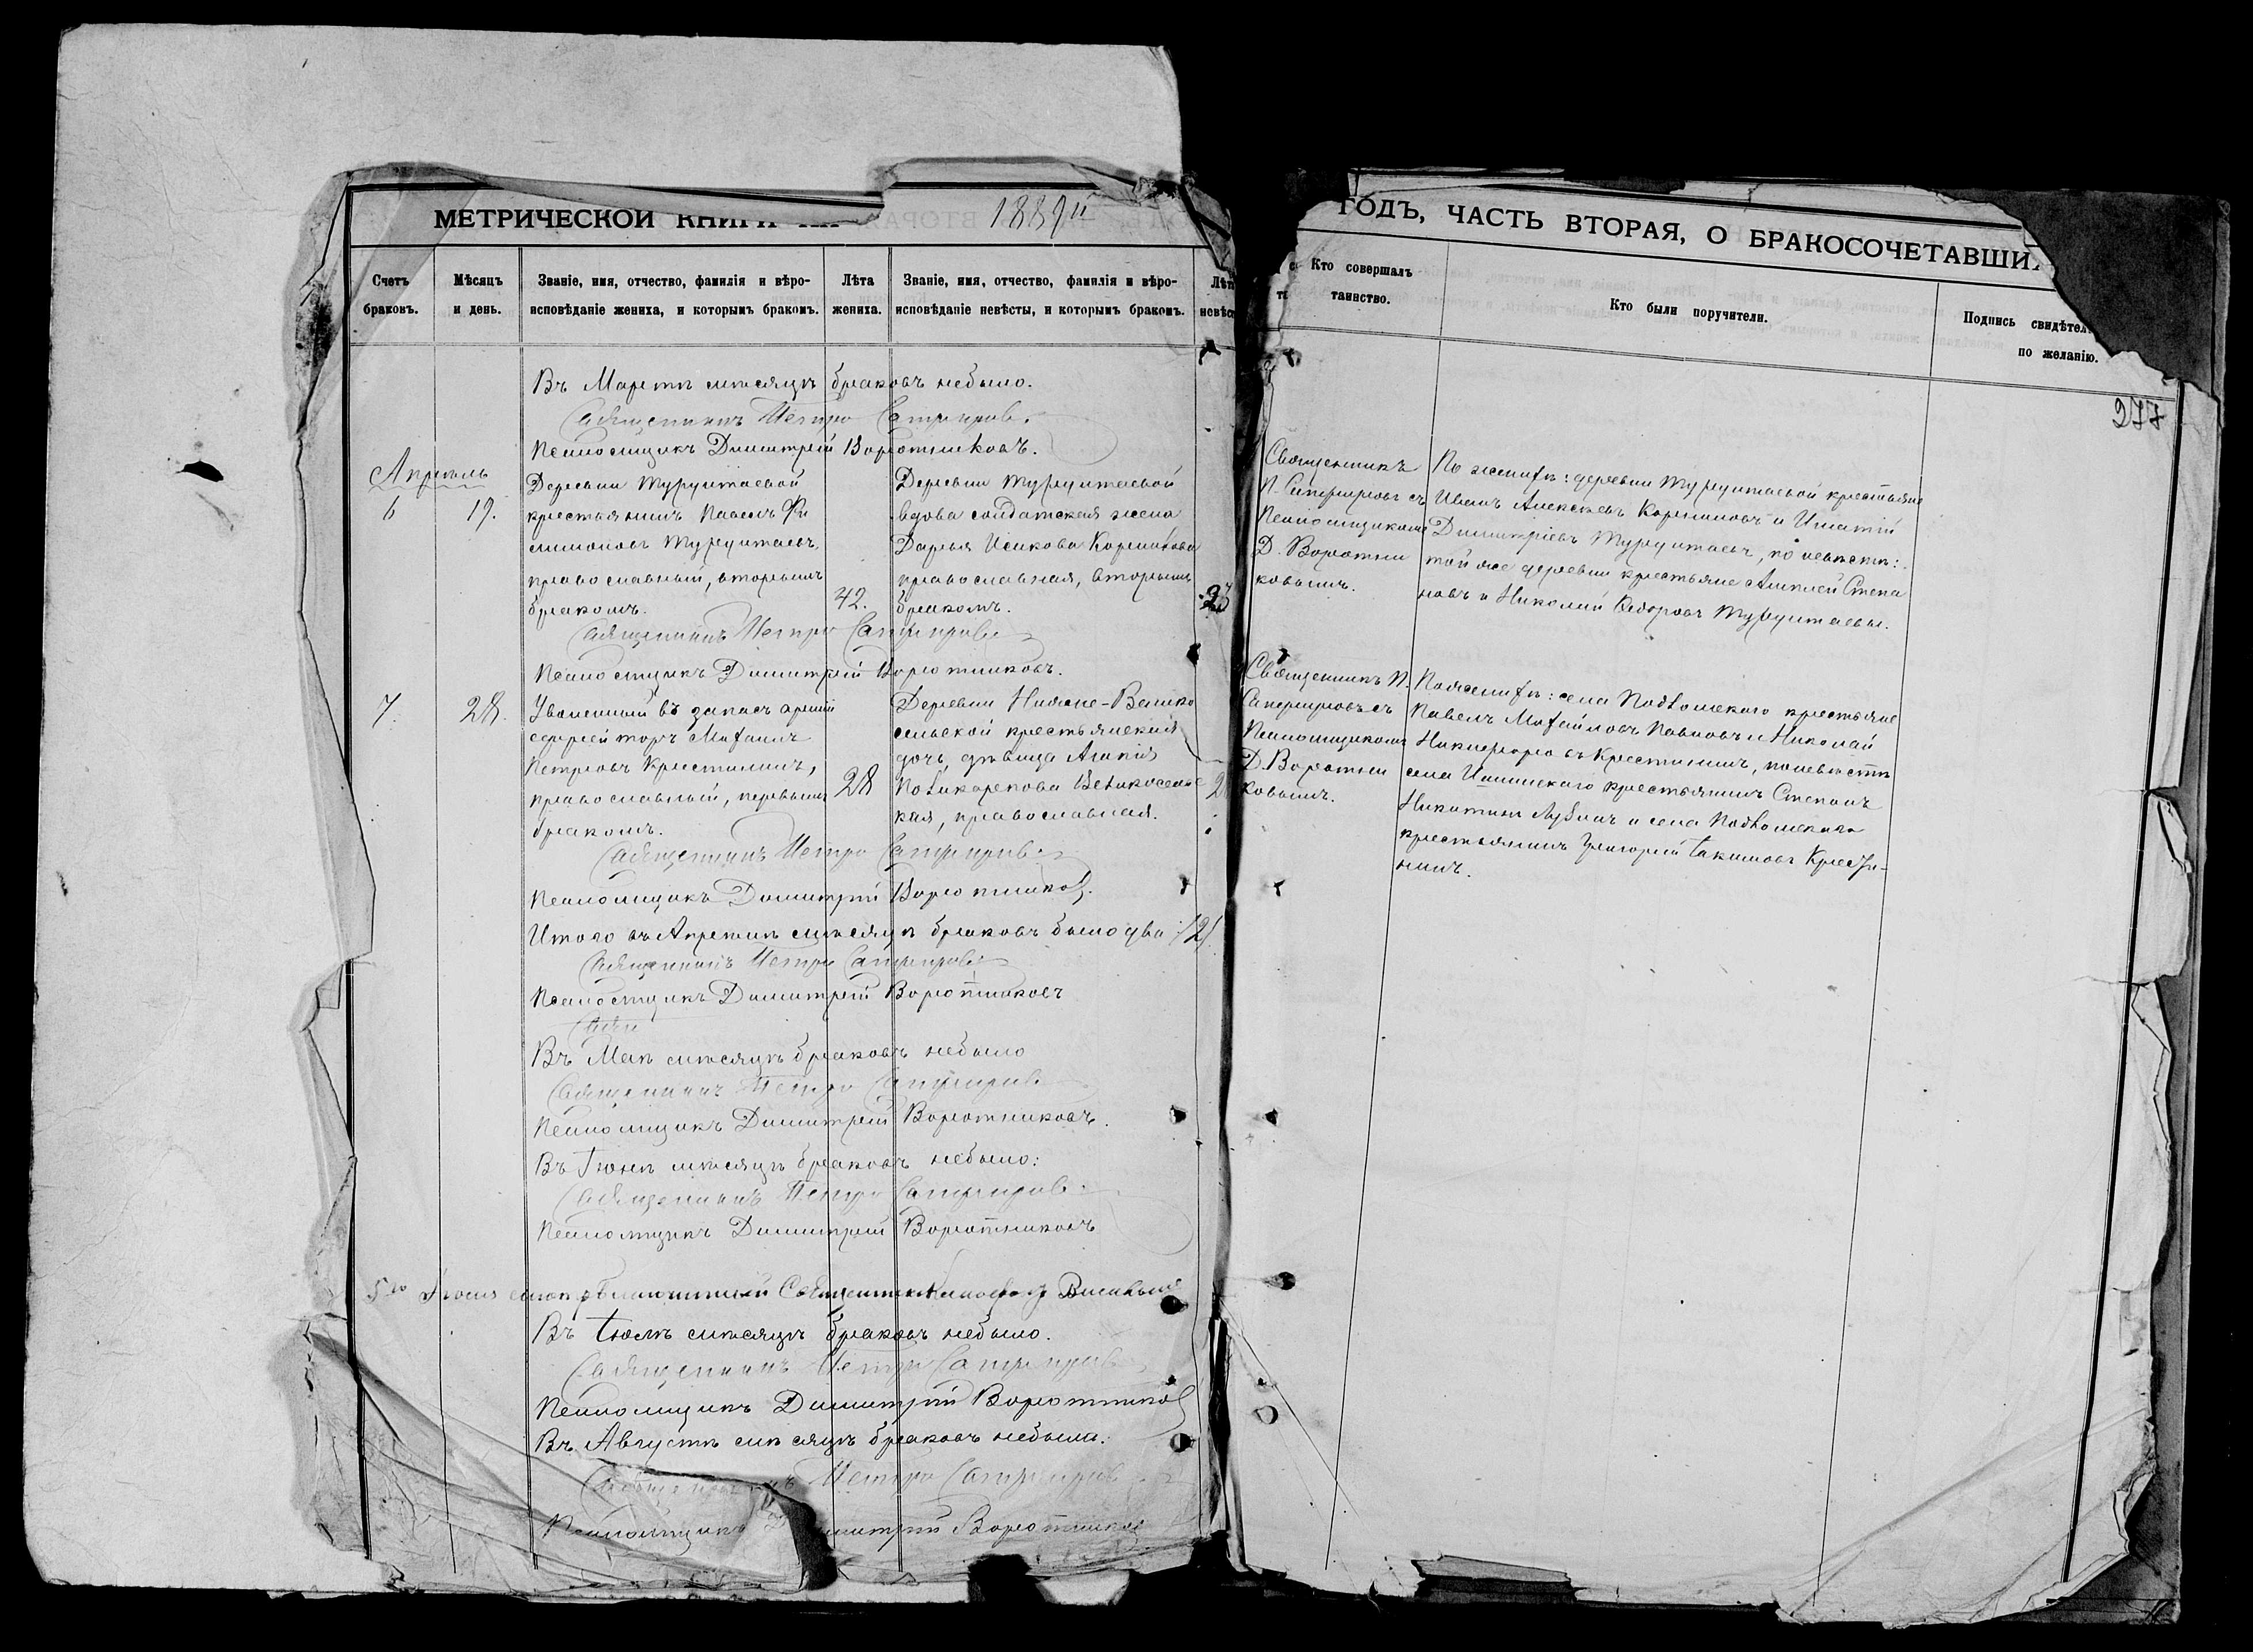 МЕТРИЧЕСКОЙ КНИГИ НА 1889й
Счетъ браковъ.
Мѣсяцъ и день.
Званіе, имя, отчество, фамилія и вѣро-
исповѣданіе жениха, и которымъ бракомъ.
Лѣта жениха.
Званіе, имя, отчество, фамилія и вѣро-
исповѣданіе невѣсты, и которымъ бракомъ.
Въ Мартѣ мѣсяцѣ браковъ небыло.
Священникъ Петръ Сапфировъ
Псаломщикъ Димитрій Воротниковъ.
Апрѣль
6
19.
Деревни Турунтаевой
крестьянинъ Павелъ Фи
лимоновъ Турунтаевъ,
православный, вторымъ
бракомъ.
42.
Деревни Турунтаевой
вдова солдатская жена
Дарья Исакова
православная, вторымъ
бракомъ.
Священникъ Петръ Сапфировъ
Псаломщикъ Димитрій Воротниковъ.
7.
28.
Уволенный въ запасъ арміи
ефрейторъ Михаилъ
Петровъ Крестининъ,
православный, первымъ
бракомъ.
28
Деревни Нижне-Велико
сельской крестьянская
дочь, дѣвица
Поликарпова Великосель
ская, православная.
Священникъ Петръ Сапфировъ
Псаломщикъ Димитрій Воротниковъ.
Итого въ Апрѣлѣ мѣсяцѣ браковъ было два /2/.
Священникъ Петръ Сапфировъ
Псаломщикъ Димитрій Воротниковъ
Свящ
Въ Маѣ мѣсяцѣ браковъ небыло
Священникъ Петръ Сапфировъ
Псаломщикъ Димитрій Воротниковъ.
Въ Іюнѣ мѣсяцѣ браковъ небыло:
Священникъ Петръ Сапфировъ
Псаломщикъ Димитрій Воротниковъ
5го Іюля
Въ Іюлѣ мѣсяцѣ браковъ небыло.
Священникъ Петръ Сапфировъ
Псаломщикъ Димитрій Воротниковъ
Въ Августѣ мѣсяцѣ браковъ небыло.
Священникъ Петръ Сапфировъ
Псаломщикъ Димитрій Воротниковъ
ГОДЪ, ЧАСТЬ ВТОРАЯ, О БРАКОСОЧЕТАВШИХ
Кто совершалъ таинство.
Кто были поручители.
Подпись свидѣтел
по желанію.
277
Священникъ
П. Сапфировъ съ
Псаломщикомъ
Д. Воротни
ковымъ.
По женихѣ: деревни Турунтаевой крестьяне
Иванъ Алексѣевъ и Игнатій
Димитріевъ Турунтаевъ, по невѣстѣ:
той же деревни крестьяне Алексѣй Степа
новъ и Николай Ѳедоровъ Турунтаевы.
Священникъ П.
Сапфировъ съ
Псаломщикомъ
Д. Воротни
ковымъ.
По женихѣ: села крестьяне
Павелъ Михайловъ Поповъ и Николай
Никифоровъ Крестининъ, по невѣстѣ
села крестьянинъ Степанъ
Никитинъ и села
крестьянинъ Григорій Крести-
нинъ.